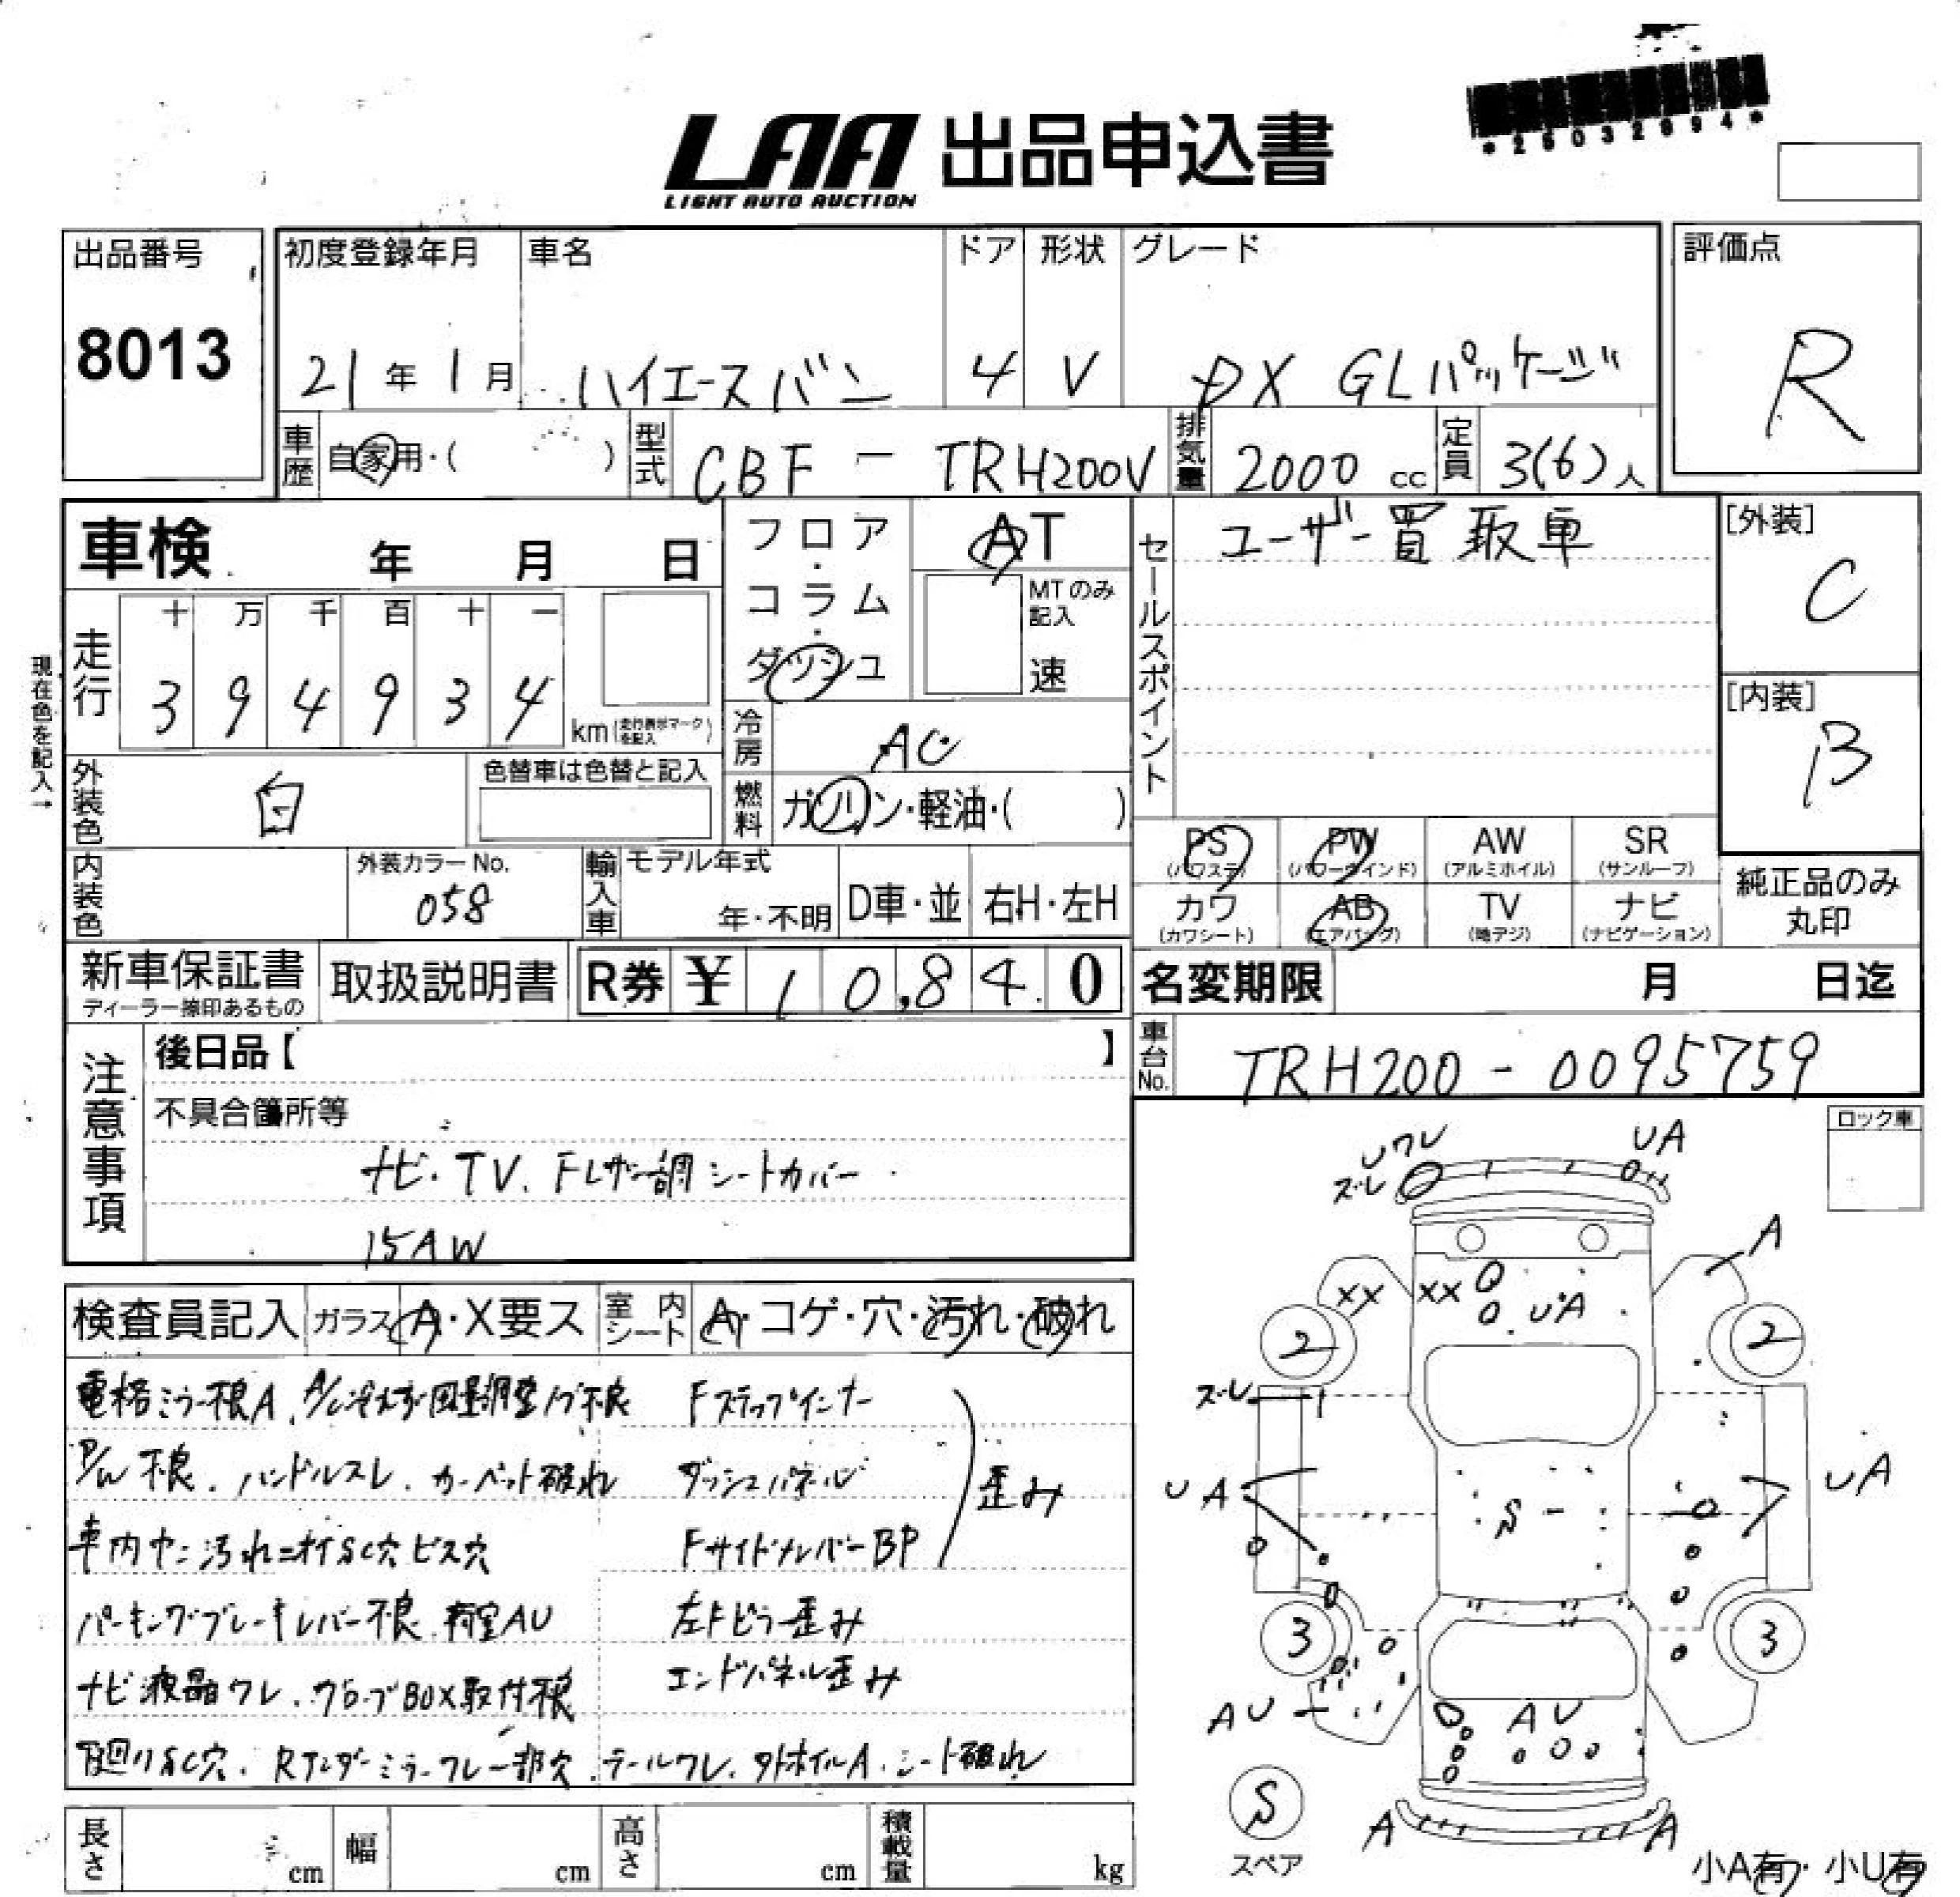 *25032894*
LAA 出品申込書
LIGHT AUTO AUCTION
出品番号
8013
初度登録年月
21年1月
車名
ハイエースバン
ドア
4
形状
V
グレード
DX GLパッケージ
評価点
R
車歴
自家用・( )
型式
CBF - TRH200V
排気量
2000 cc
定員
3(6)人
車検 年 月 日
フロア・コラム・ダッシュ
AT
MTのみ記入
速
セールスポイント
ユーザー買取車
[外装]
C
[内装]
B
現在色を記入→
走行
十 万 千 百 十 一
3 9 4 9 3 4
km(走行表示マークを記入)
冷房
AC
外装色
白
色替車は色替と記入
燃料
ガソリン・軽油・( )
PS
(パワステ)
PW
(パワーウインド)
AW
(アルミホイル)
SR
(サンルーフ)
カワ
(カワシート)
AB
(エアバッグ)
TV
(地デジ)
ナビ
(ナビゲーション)
純正品のみ
丸印
内装色
外装カラーNo.
058
輸入車
モデル年式
年・不明
D車・並
右H・左H
新車保証書
ディーラー捺印あるもの
取扱説明書
R券 ¥ 10,840
名変期限 月 日迄
車台No.
TRH200-0095759
注意事項
後日品【 】
不具合箇所等
ナビ・TV、Fレザー調シートカバー
15AW
ロック車
検査員記入
ガラス A・X要ス
室内シート A・コゲ・穴・汚れ・破れ
電格ミラー不良A、A/C冷えず風量調整ノブ不良
P/W不良、ハンドルスレ、カーペット破れ
車内ヤニ汚れニオイSC穴ビス穴
パーキングブレーキレバー不良 荷室AU
ナビ液晶ワレ、グローブBOX取付不良
下回りSC穴、Rアンダーミラーワレ一部欠、テールワレ、タトホイルA、シート破れ
Fステップインナー
ダッシュパネル
FサイドメンバーBP
歪み
左Fピラー歪み
エンドパネル歪み
Uワレ
ズレ
UA
A
XX
XX
UA
2
2
ズレ
UA
S
UA
3
3
AU
AU
S
スペア
A
A
小A有・小U有
長さ cm
幅 cm
高さ cm
積載量 kg